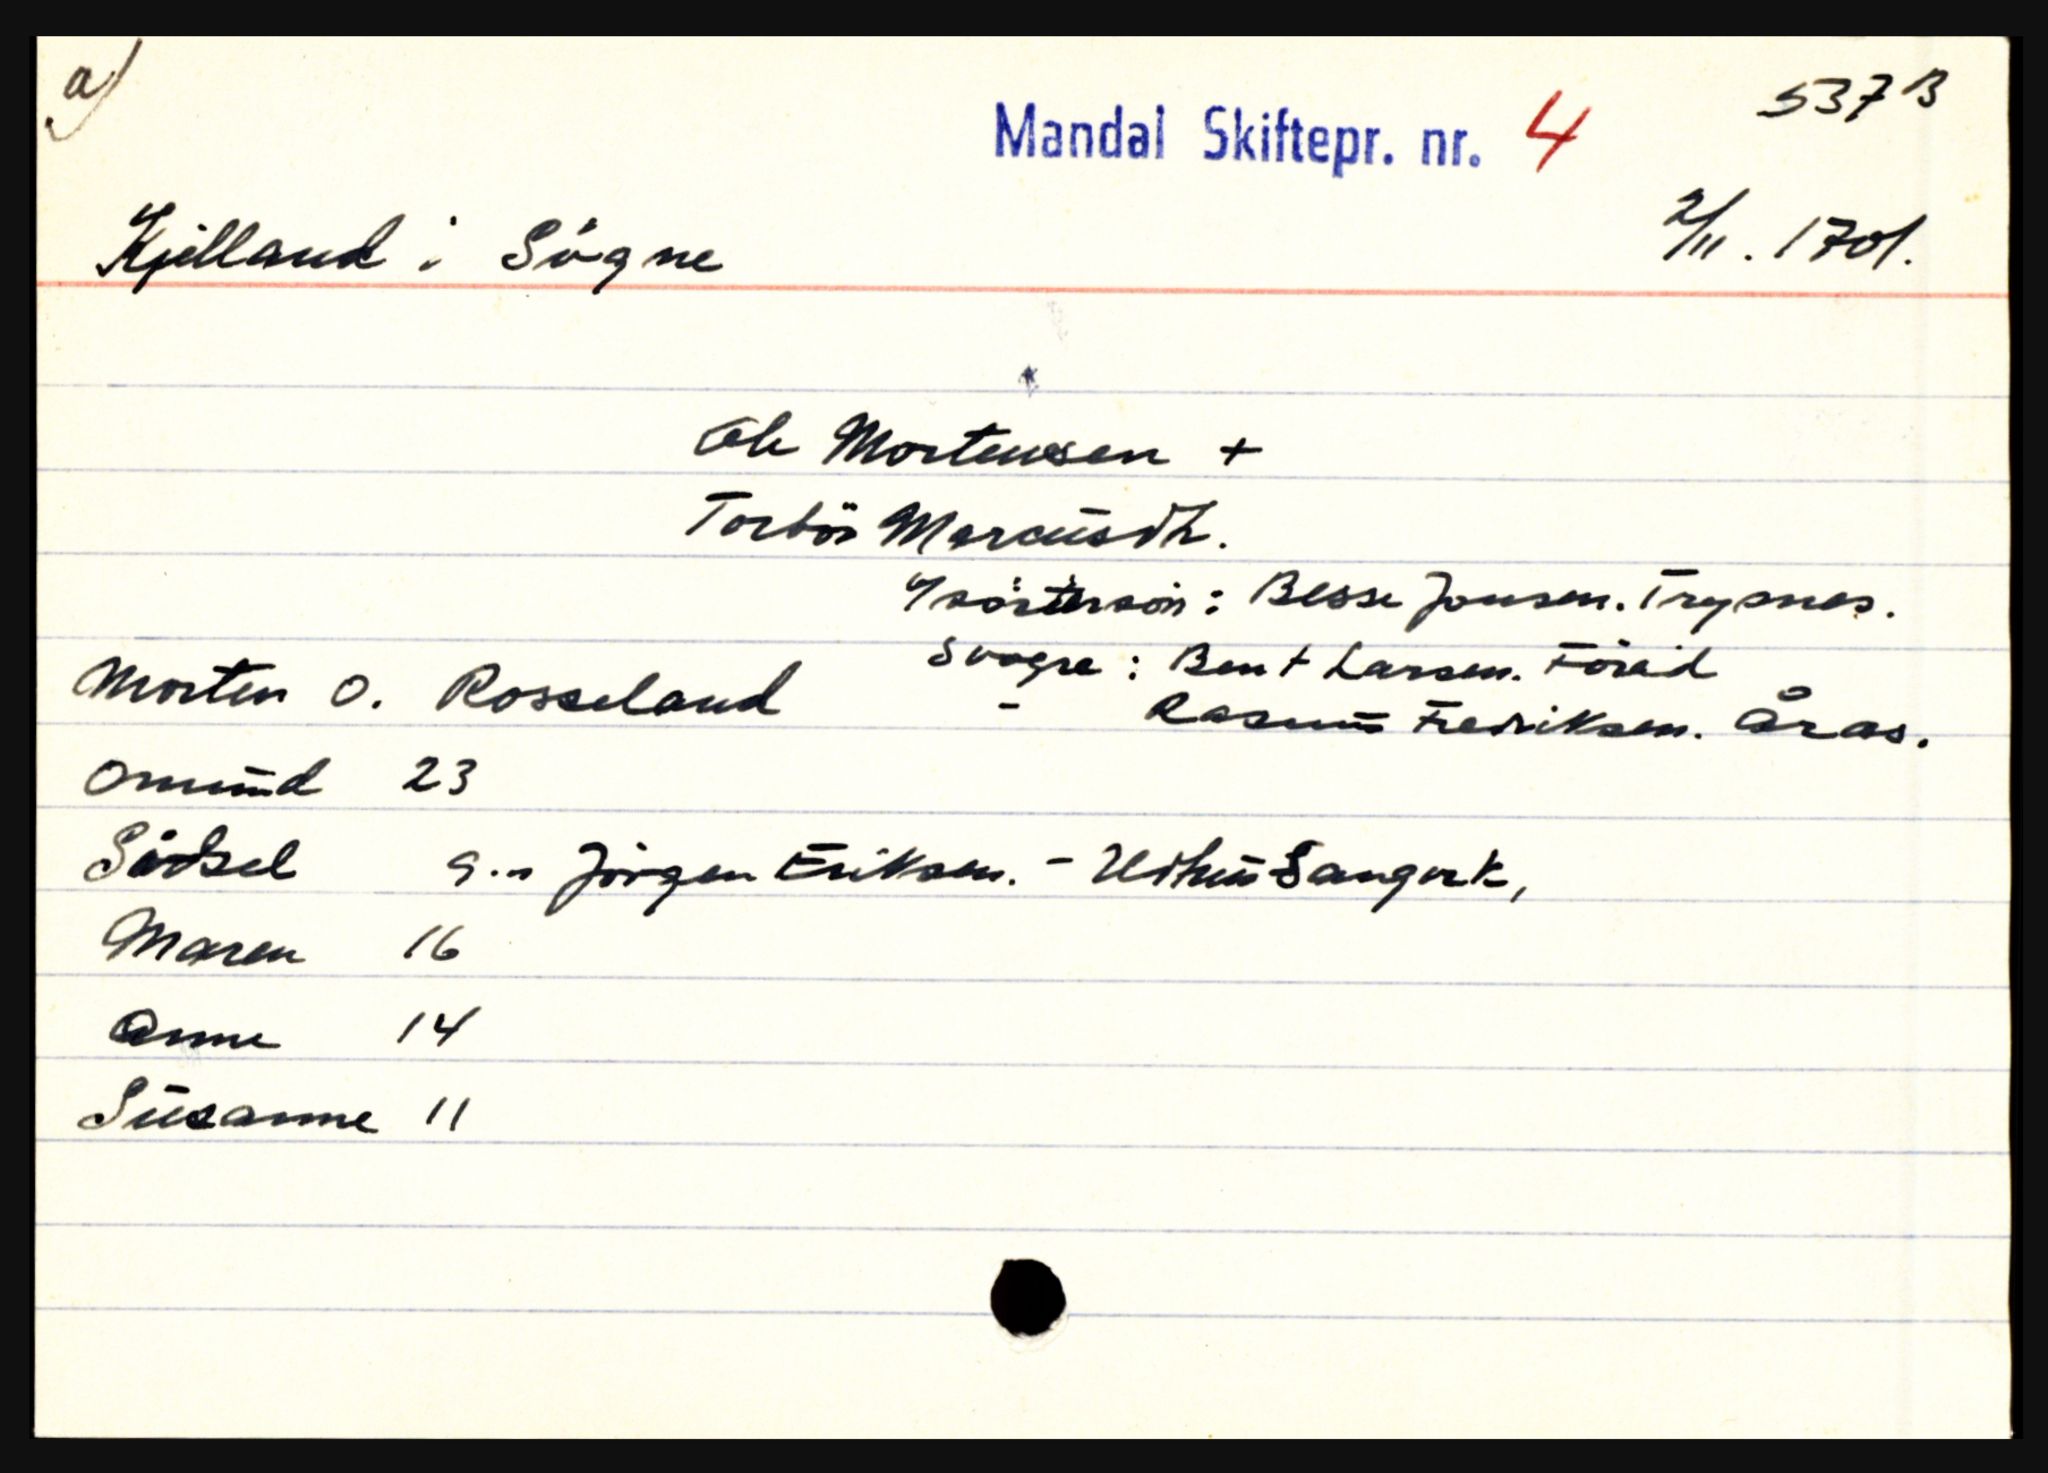 a)
Mandal Skiftepr. nr. 4
537 B
Kjelland i Søgne
2/11. 1701.
Ole Mortensen +
Torbör Marcusdtr.
Besse Jonsen. Trysnes.
Svogre : Bent Larsen. Föreid
Morten O. Rosseland
- Rasmus Fredriksen. Åros.
Omund 23
Sidsel g.m Jörgen Eriksen. -
Maren 16
Anne 14
Susanne 11